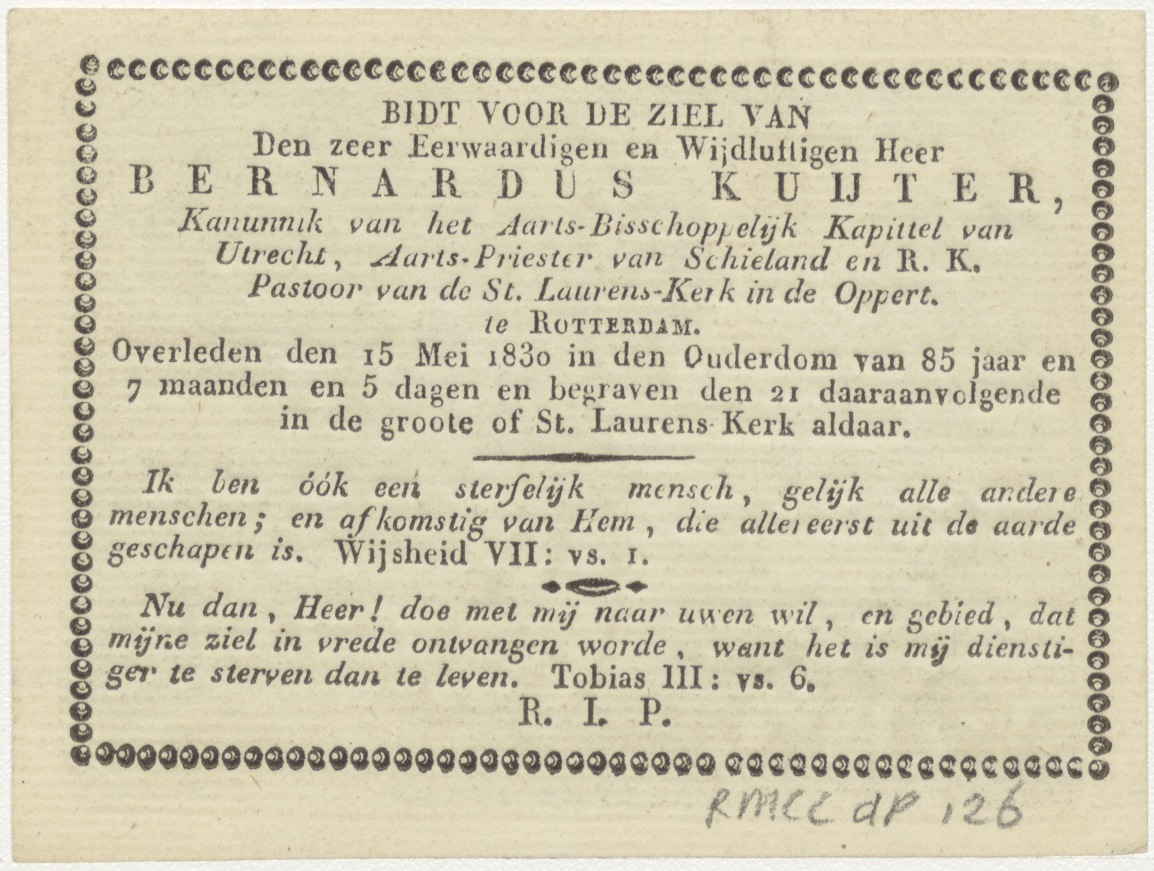 BIDT VOOR DE ZIEL VAN
Den zeer Eerwaardigen en Wijdluftigen Heer
BERNARDUS KUIJTER,
Kanunnik van het Aarts-Bisschoppelijk Kapittel van
Utrecht, Aarts-Priester van Schieland en R. K.
Pastoor van de St. Laurens-Kerk in de Oppert.
te ROTTERDAM.
Overleden den 15 Mei 1830 in den Ouderdom van 85 jaar en
7 maanden en 5 dagen en begraven den 21 daaraanvolgende
in de groote of St. Laurens-Kerk aldaar.
Ik ben óók een sterfelijk mensch, gelijk alle andere
menschen; en afkomstig van Hem, die allereerst uit de aarde
geschapen is. Wijsheid VII: vs. 1.
Nu dan, Heer! doe met mij naar uwen wil, en gebied, dat
mijne ziel in vrede ontvangen worde, want het is mij diensti-
ger te sterven dan te leven. Tobias III: vs. 6.
R. I. P.
RMCC dP 126